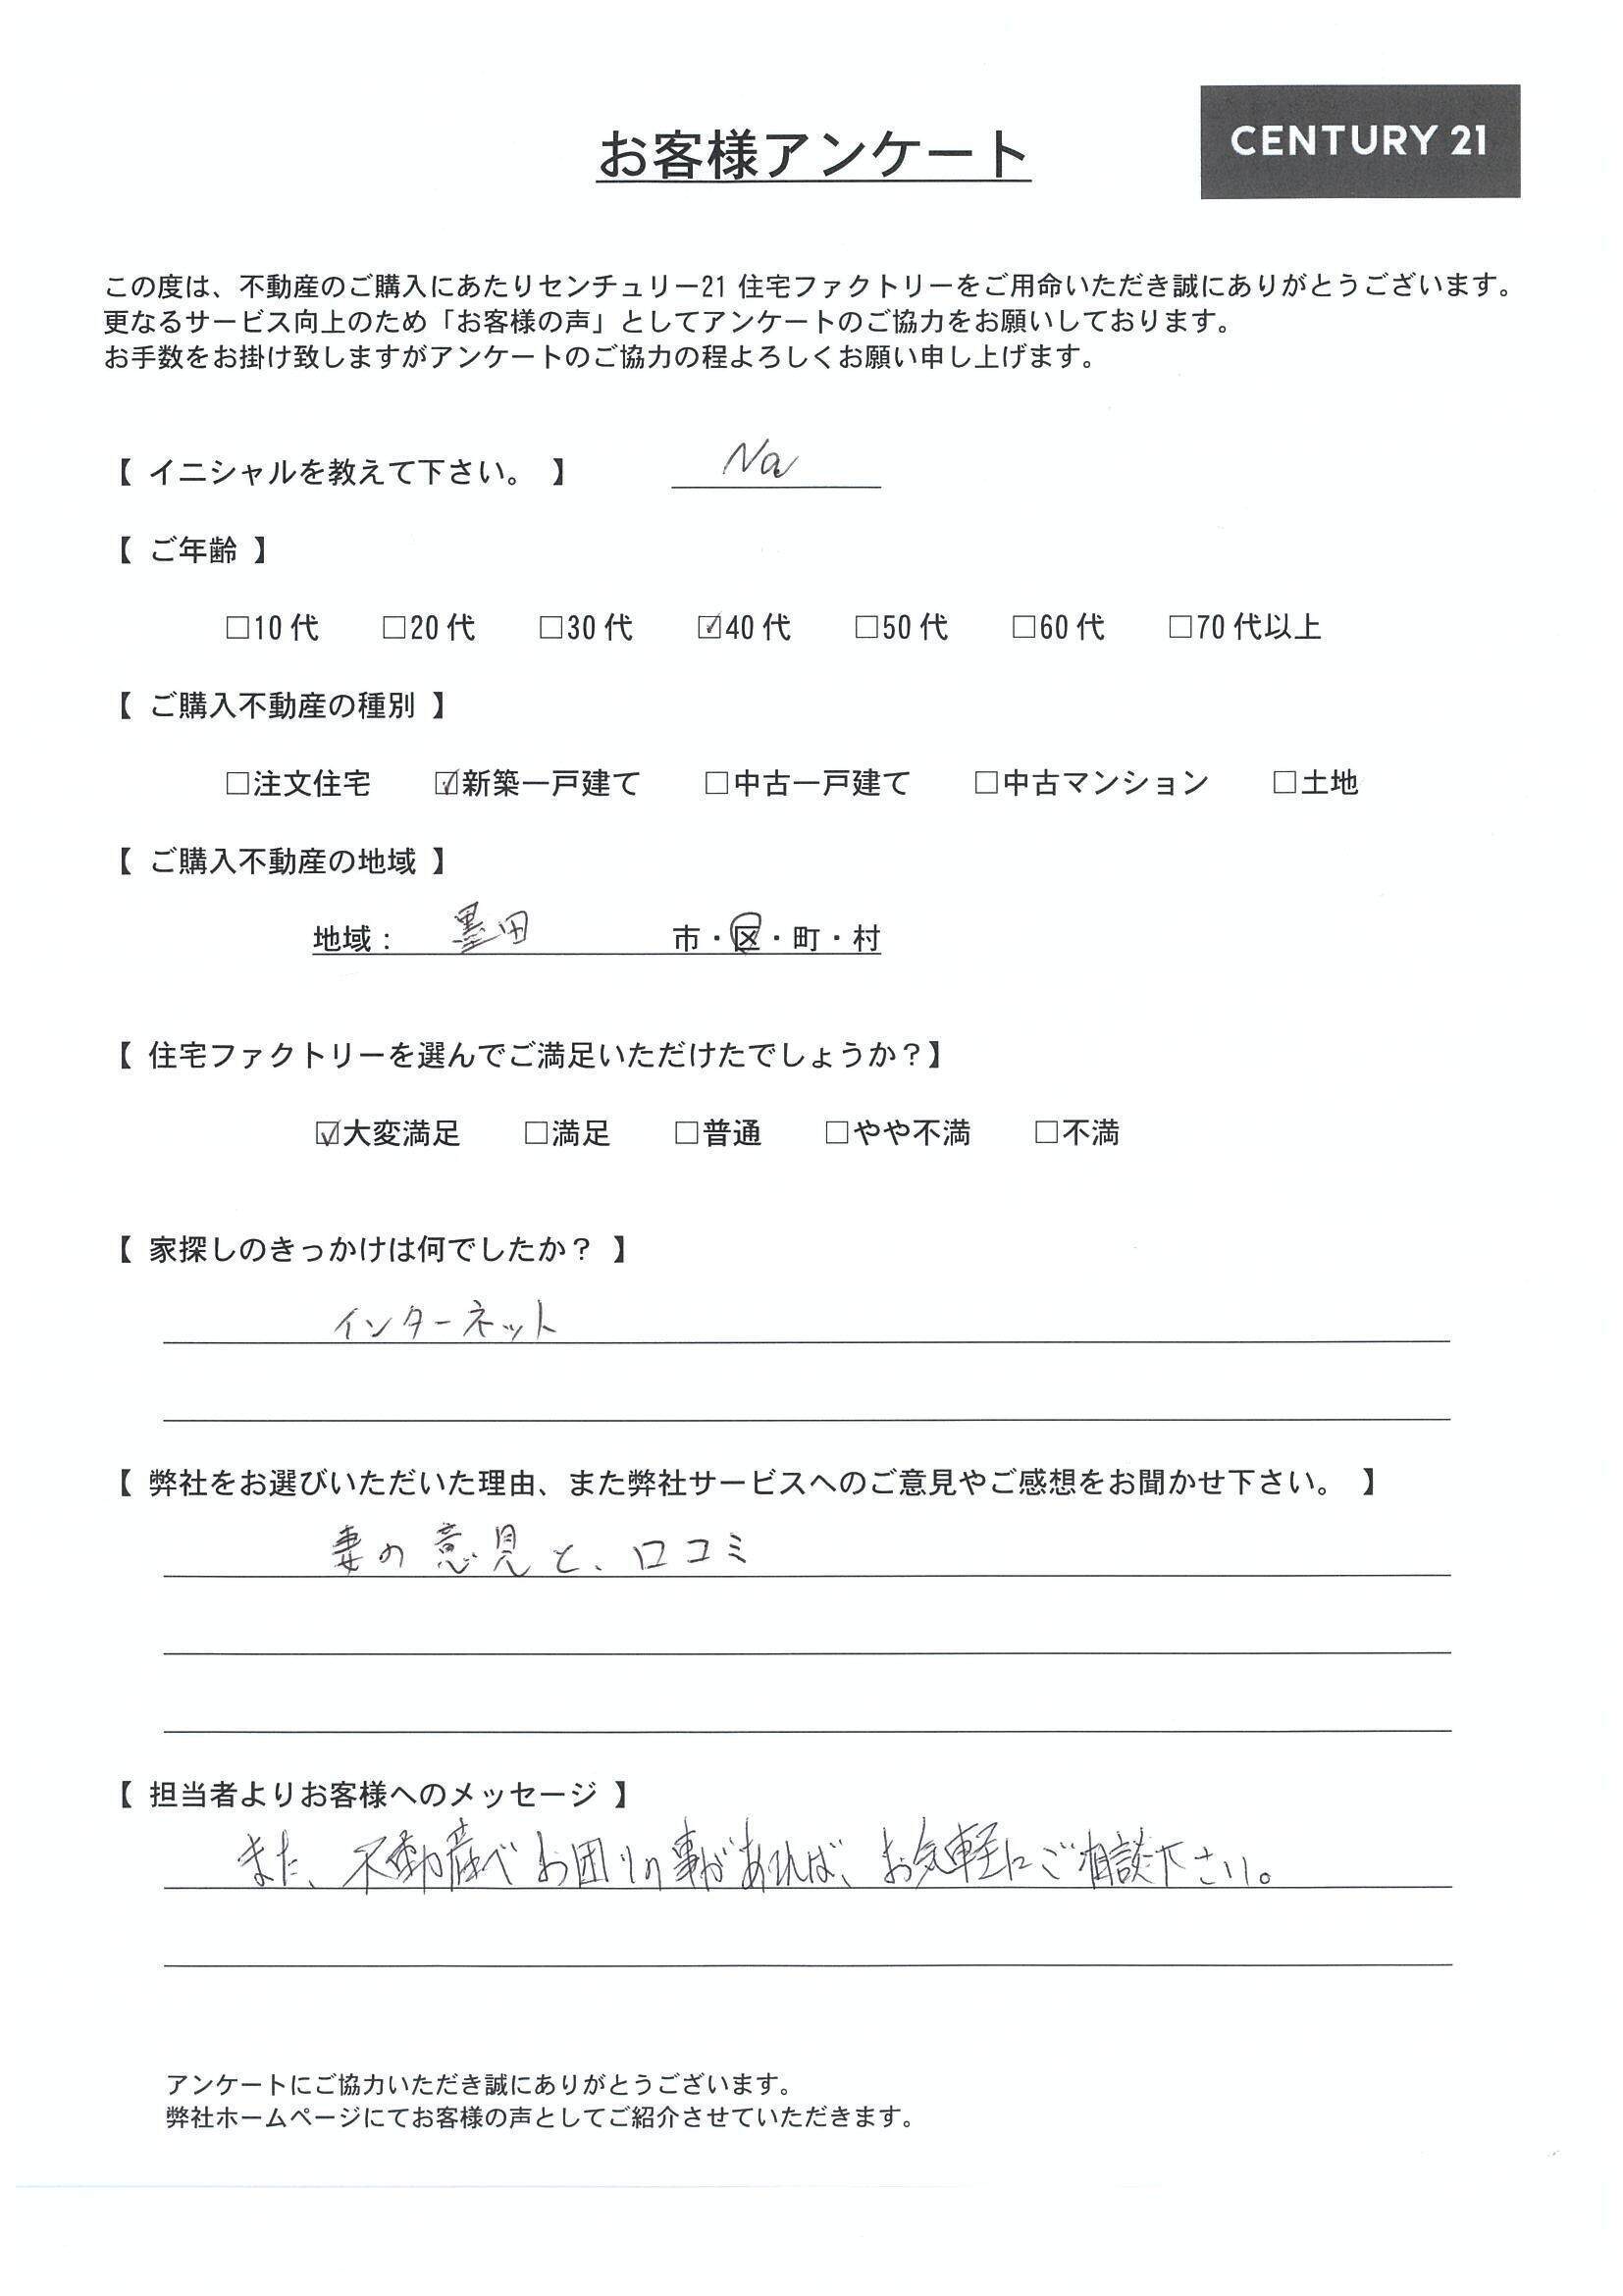 お客様アンケート
CENTURY 21
この度は、不動産のご購入にあたりセンチュリー21 住宅ファクトリーをご用命いただき誠にありがとうございます。
更なるサービス向上のため「お客様の声」としてアンケートのご協力をお願いしております。
お手数をお掛け致しますがアンケートのご協力の程よろしくお願い申し上げます。
【 イニシャルを教えて下さい。 】 Na
【 ご年齢 】
□10代 □20代 □30代 ☑40代 □50代 □60代 □70代以上
【 ご購入不動産の種別 】
□注文住宅 ☑新築一戸建て □中古一戸建て □中古マンション □土地
【 ご購入不動産の地域 】
地域: 墨田 市・区・町・村
【 住宅ファクトリーを選んでご満足いただけたでしょうか?】
☑大変満足 □満足 □普通 □やや不満 □不満
【 家探しのきっかけは何でしたか? 】
インターネット
【 弊社をお選びいただいた理由、また弊社サービスへのご意見やご感想をお聞かせ下さい。 】
妻の意見と、口コミ
【 担当者よりお客様へのメッセージ 】
また、不動産でお困りの事があれば、お気軽にご相談下さい。
アンケートにご協力いただき誠にありがとうございます。
弊社ホームページにてお客様の声としてご紹介させていただきます。